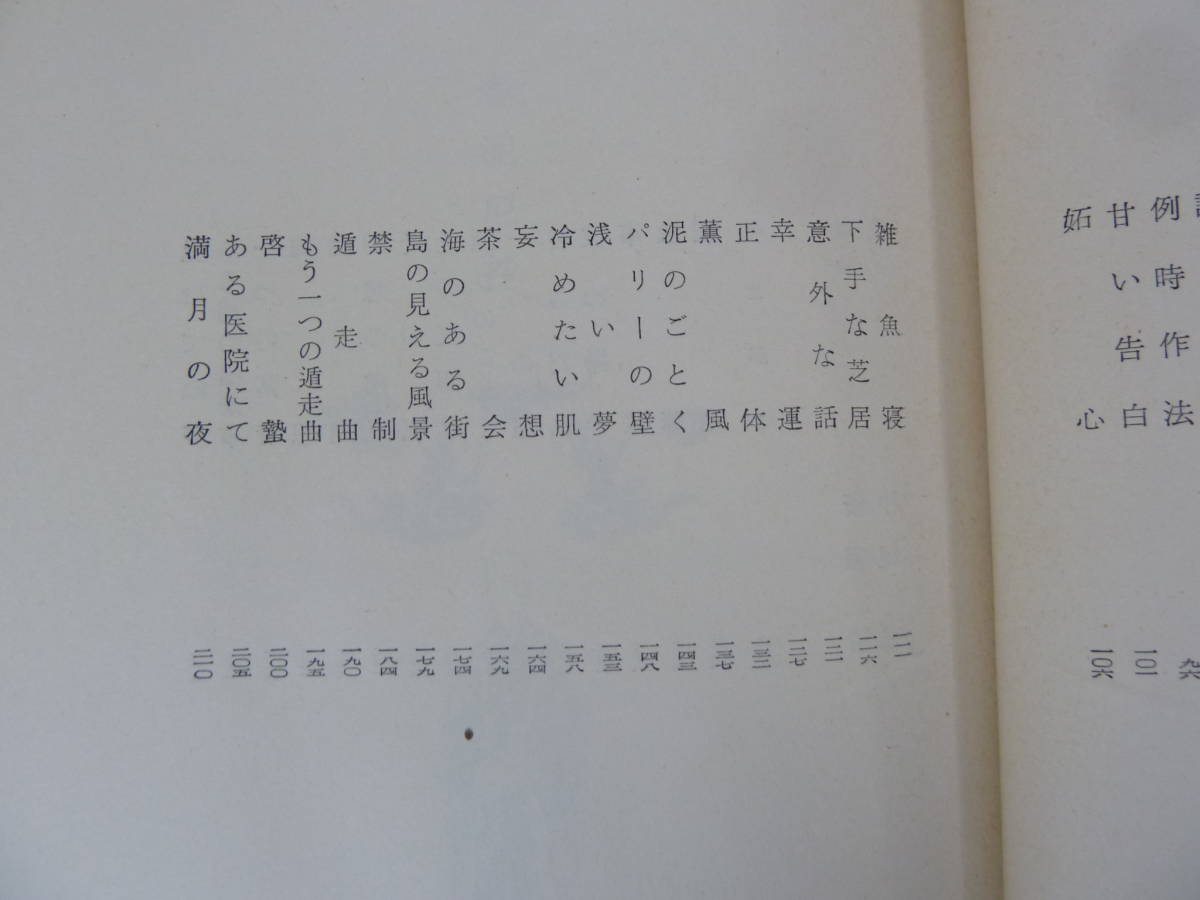 例時作法 九六
甘い告白 一〇一
妬心 一〇六
雑魚寝 一一一
下手な芝居 一一六
意外な話 一二一
幸運 一二七
正体 一三二
薫風 一三七
泥のごとく 一四三
パリーの壁 一四八
浅い夢 一五三
冷めたい肌 一五八
妄想 一六四
茶会 一六九
海のある街 一七四
島の見える風景 一七九
禁制 一八四
遁走曲 一九〇
もう一つの遁走曲 一九五
啓蟄 二〇〇
ある医院にて 二〇五
満月の夜 二一〇